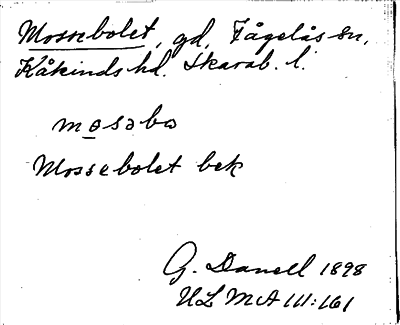 Mossebolet, gd, Fågelås sn,
Kåkinds hd. Skarab. l.
mosəbo
Mossebolet bek
G. Danell 1898
ULMA 111:161